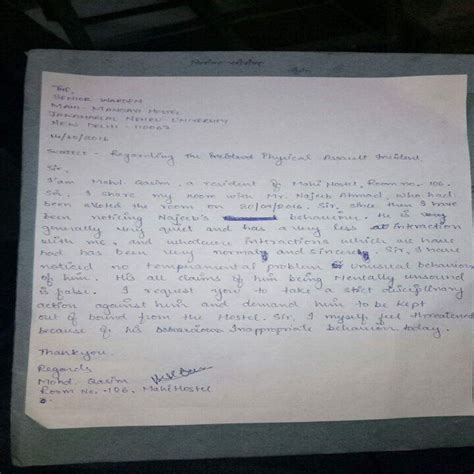 To,
SENIOR WARDEN
MAHI-MANDAVI HOSTEL
JAWAHARLAL NEHRU UNIVERSITY
NEW DELHI - 110067
14/10/2016
Subject - Regarding the Physical Assault Incident.
Sir,
I am Mohd. Qasim, a resident of Mahi Hostel, Room no. 106.
Sir, I share my room with Mr. Najeeb Ahmad, who had
been alloted the room on Sir, since then I have
been noticing Najeeb's behaviour. He is very
generally very quiet and has a very less interaction
with me, and whatever interactions which we have
had has been very normal and sincere. Sir, I have
noticed no tempramental problems unusual behaviour
of him. His all claims of him being mentally unsound
is false. I request you to take a strict disciplinary
action against him and demand him to be kept
out of bound from the Hostel. Sir, I myself feel threatened
because of his Inappropriate behaviour today.
Thankyou.
Regards
Mohd. Qasim
Room No. -106, Mahi Hostel